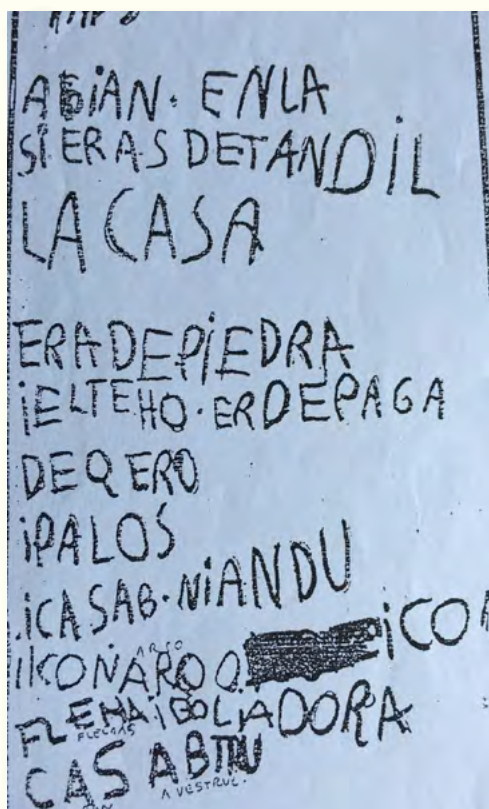 ABIAN. ENLA
SIERAS DETANDIL
LA CASA
ERADEPIEDRA
iELTEHO. ERDEPAGA
DEQERO
iPALOS
iCASAB. NiANDU
ARCO
iCONAROO iCO
FLEHAiBOLiADORA
FLECHAS
CASABTIU
AVESTRUZ.